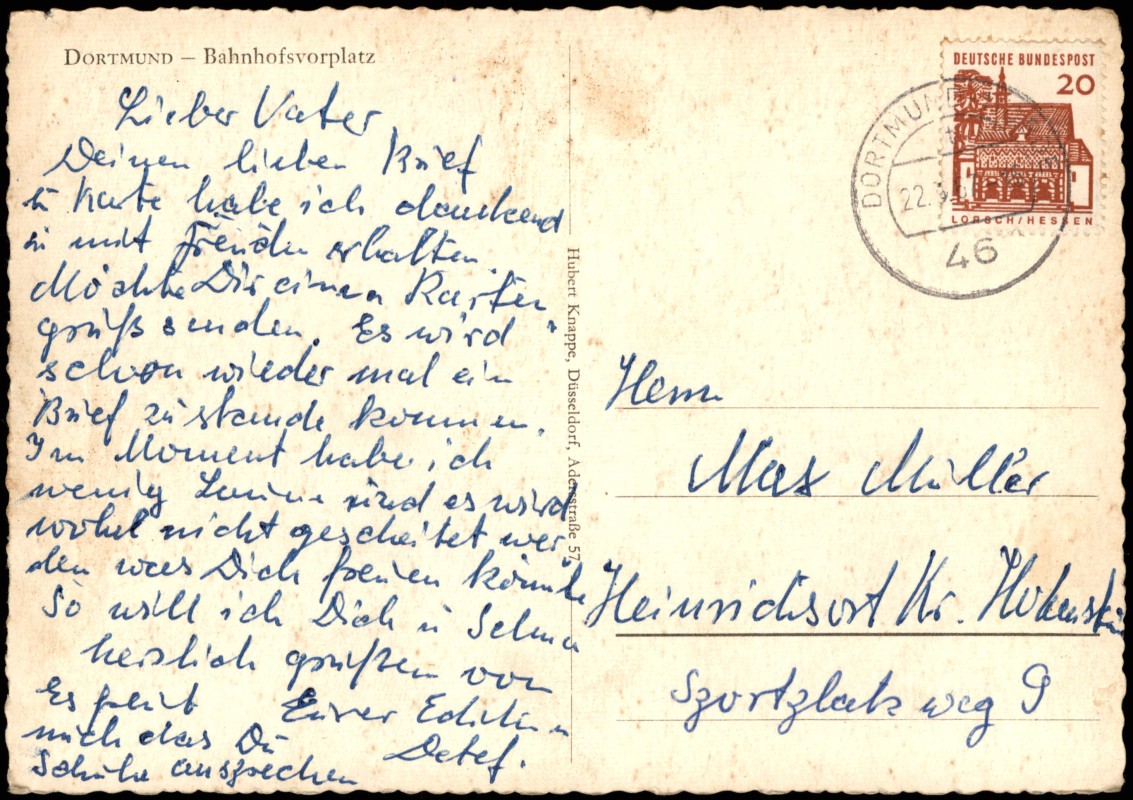 DORTMUND – Bahnhofsvorplatz
Lieber Vater
Deinen lieben Brief
u Karte habe ich dankend
u mit Freuden erhalten.
Möchte Dir einen Karten
gruß senden. Es wird
schon wieder mal ein
Brief zu stande kommen.
Im Moment habe ich
wenig Laune und es wird
wohl nicht gescheitet wer
den was Dich freuen könnte
So will ich Dich u Selma
herzlich grüßen von
Eurer Edith u
Detef.
Es freut
mich das Du
Schuhe ansprechen
Hubert Knappe, Düsseldorf, Adersstraße 57
DEUTSCHE BUNDESPOST
20
LORSCH/HESSEN
DORTMUND
22.
46
Herrn
Max Müller
Heinrichsort Kr. Hohenstein
Sportplatzweg 9